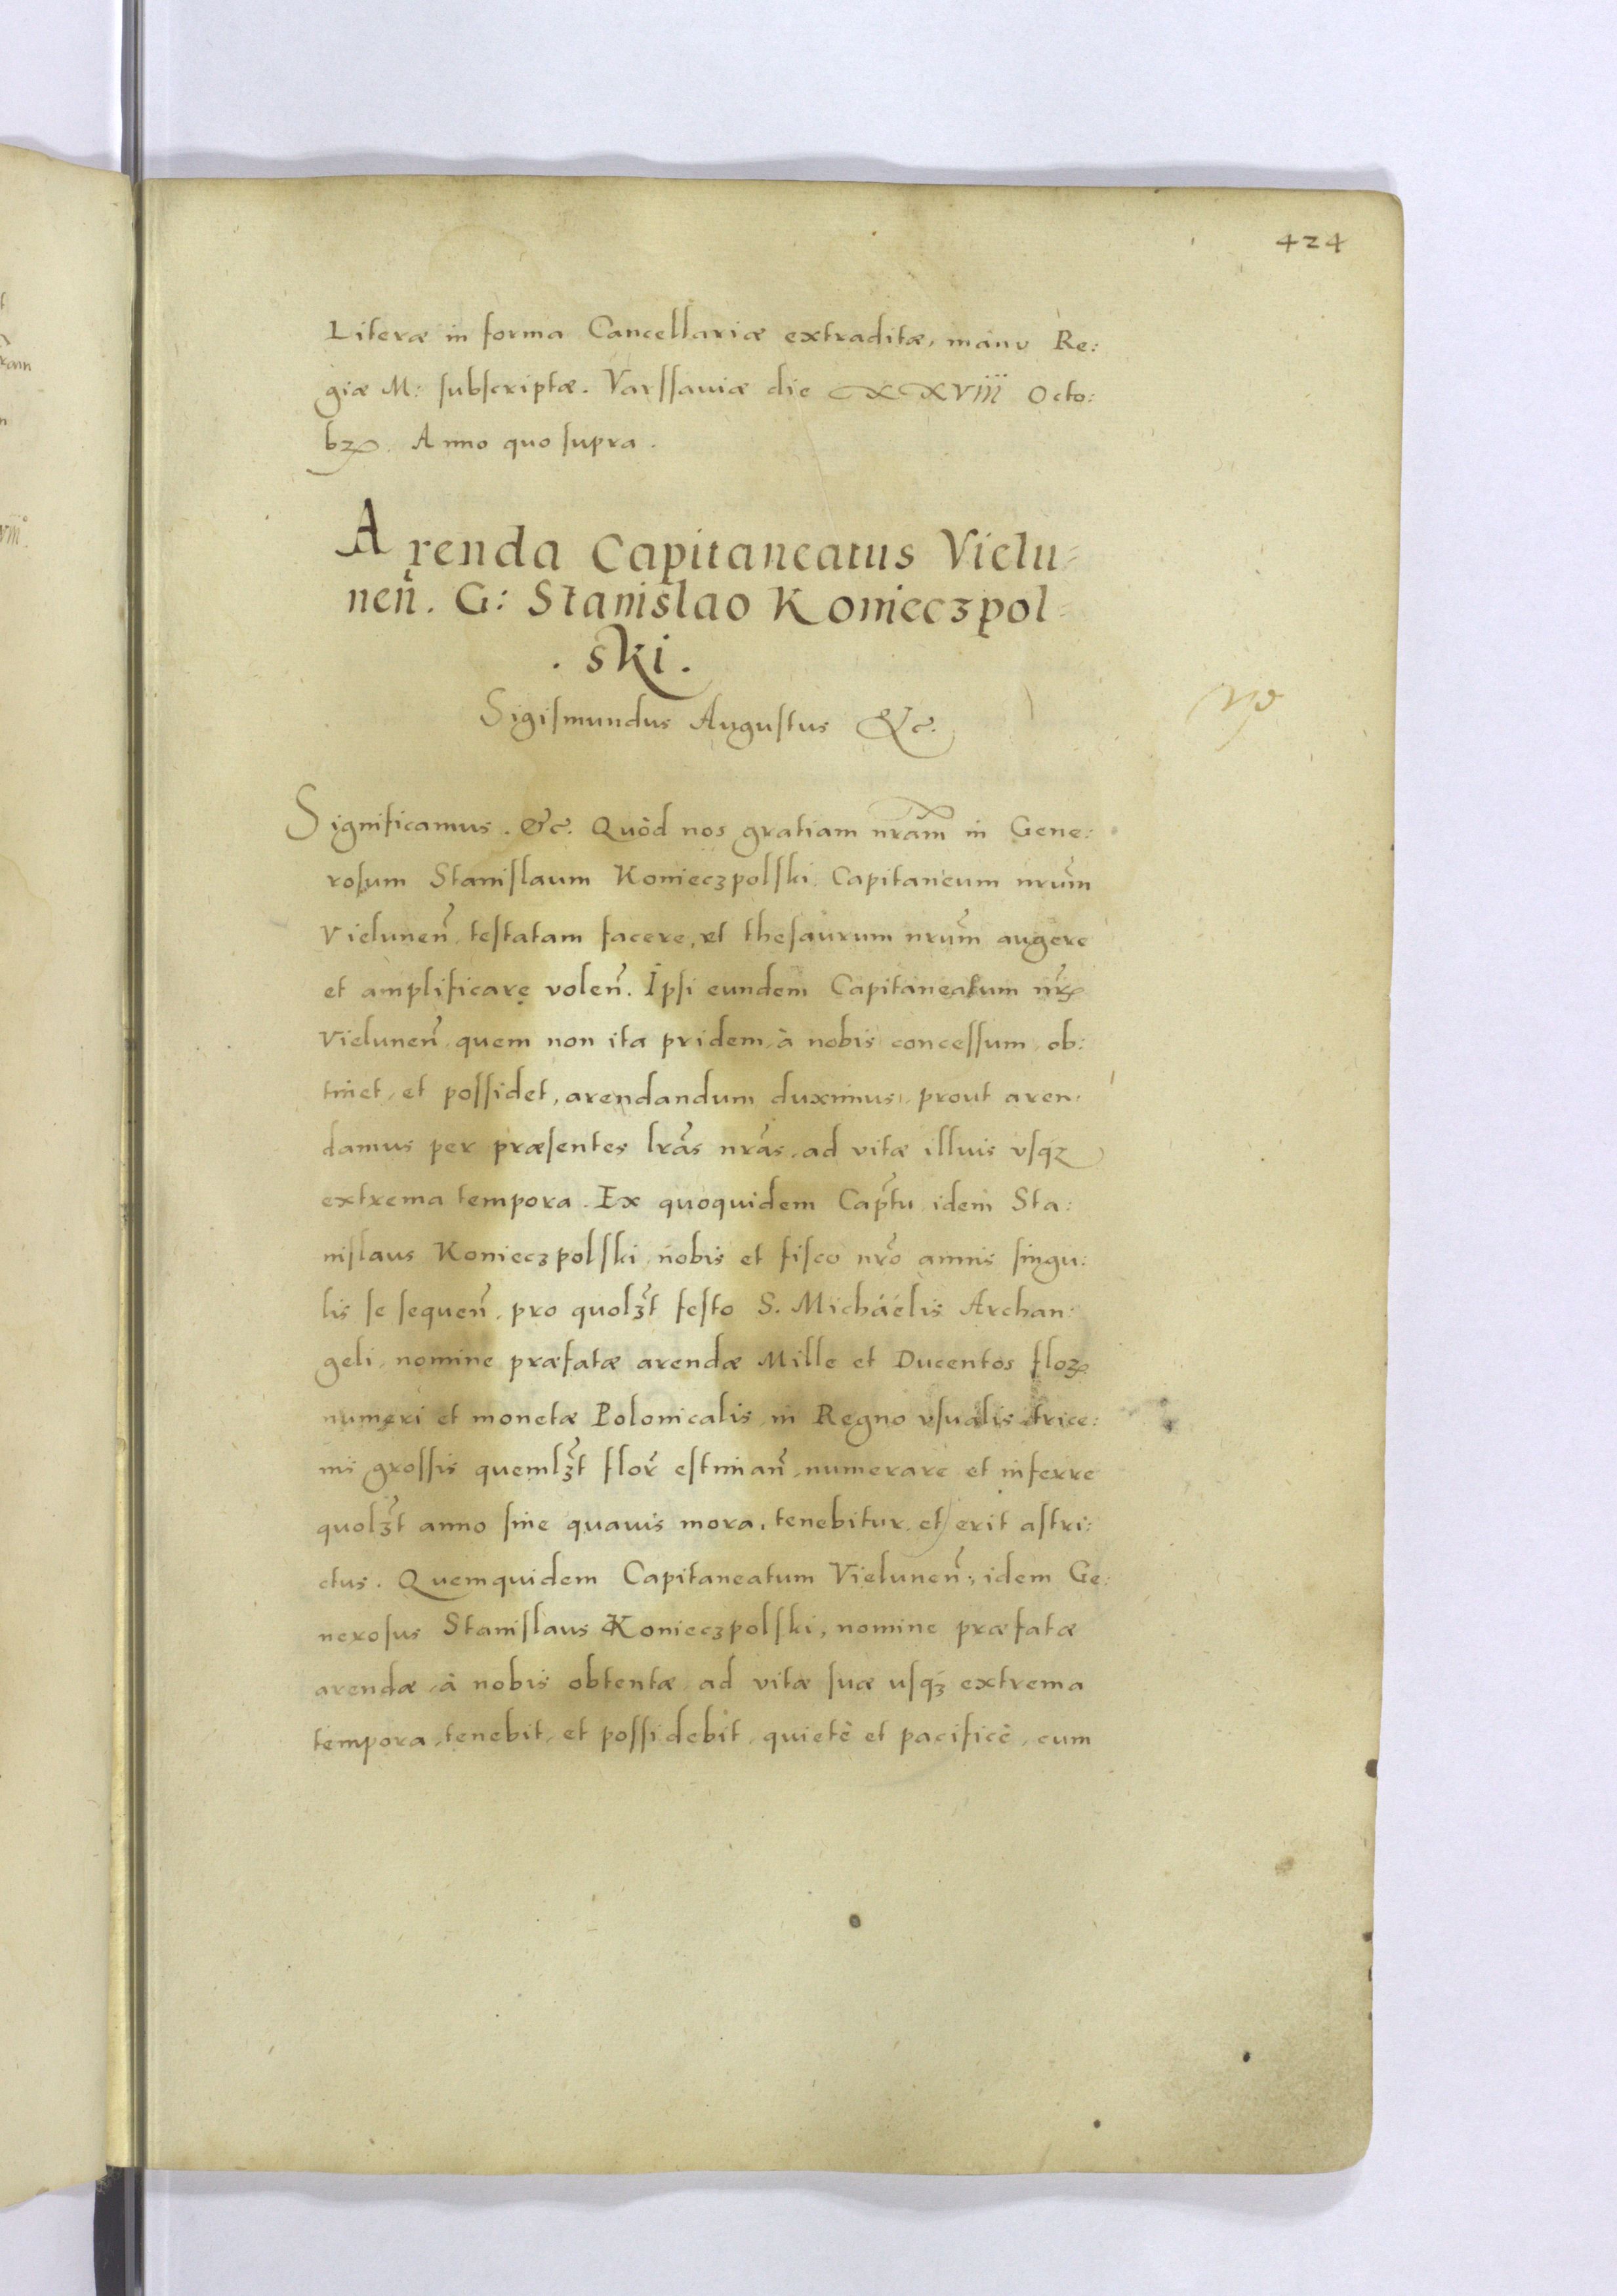 424
Literæ in forma Cancellariæ extraditæ, manu Re:
giæ M: subscriptæ. Varssauiæ die XXVIII Octo:
bꝝ. Anno quo supra.
Arenda Capitaneatus Vielu=
neñ. G: Stanislao Koniecʒpol=
. ski.
Sigismundus Augustus &c.
Significamus. &c. Quòd nos gratiam nr̃am in Gene:
rosum Stanislaum Koniecʒpolski, Capitaneum nrũm
Vieluneñ, testatam facere, et thesaurum nrũm augere
et amplificare voleñ. Ipsi eundem Capitaneatum nr̃ꝝ
Vieluneñ, quem non ita pridem, à nobis concessum, ob:
tinet, et possidet, arendandum duximus, prout aren:
damus per præsentes lrãs nrãs, ad vitæ illius vsqꝫ
extrema tempora. Ex quoquidem Capt̃u, idem Sta:
nislaus Koniecʒpolski, nobis et fisco nrõ annis singu:
lis se sequeñ, pro quolʒ̃t festo S. Michàélis Archan:
geli, nomine præfatæ arendæ Mille et Ducentos floꝝ
numeri et monetæ Polonicalis, in Regno vsualis, trice:
nis grossis quemlʒ̃t flor̃ estimañ, numerare et inferre
quolʒ̃t anno sine quauis mora, tenebitur, et erit astri:
ctus. Quemquidem Capitaneatum Vieluneñ:, idem Ge:
nerosus Stanislaus Koniecʒpolski, nomine præfatæ
arendæ, à nobis obtentæ, ad vitæ suæ usqꝫ extrema
tempora, tenebit, et possidebit, quietè et pacificè, cum